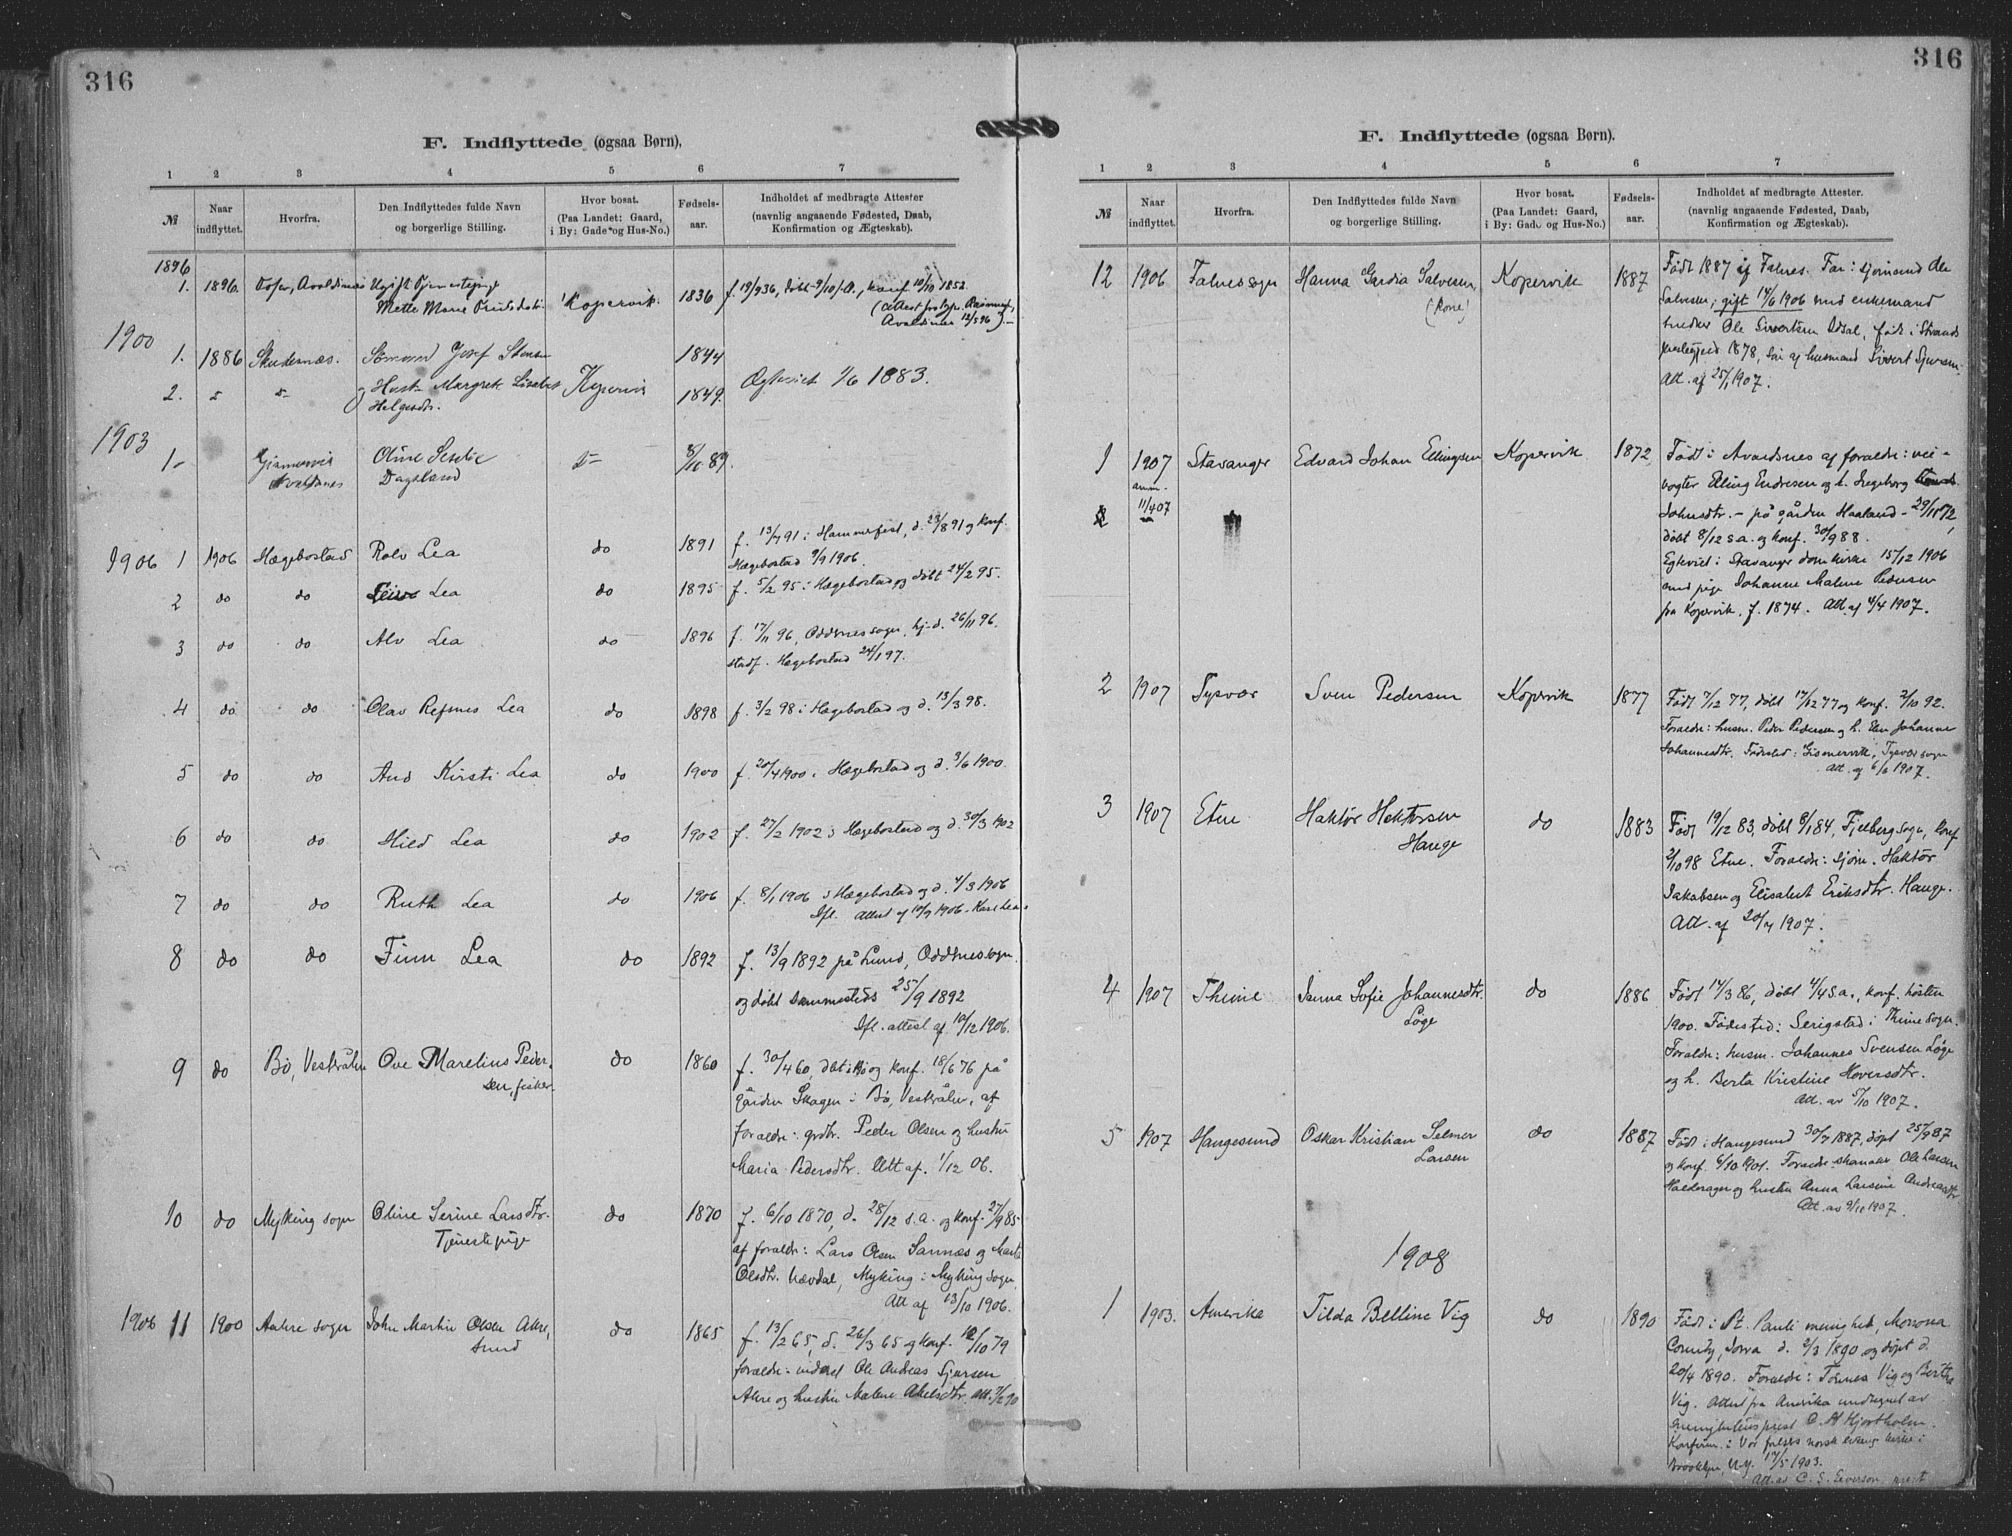 316
F. Indflyttede (ogsaa Børn).
1 2 3 4 5 6 7
№ Naar indflyttet. Hvorfra. Den Indflyttedes fulde Navn og borgerlige Stilling. Hvor bosat. (Paa Landet: Gaard, i By: Gade og Hus-No.) Fødsels-aar. Indholdet af medbragte Attester (navnlig angaaende Fødested, Daab, Konfirmation og Ægteskab).
1896
1. 1896. Avaldsnes Ugift Tjenestepige Kopervik 1836 f. 19/9 36, døbt 9/10 s.A., konf 10/10 1852.
Mette Marie
Avaldsnes 12/5 96).-
1900
1. 1886 Skudesnæs. Josef 1844
2. " " og Hustr. Margrete Lisabet Kopervik 1849. Ægteviet 1/6 1883.
Helgesdtr.
1903
1- Gismervik Oline 8/10 89.
Avaldsnes Dagsland
1906 1 1906 Hægebostad Rolv Lea do 1891 f. 13/7 91 i Hammerfest, d. 23/8 91 og konf.
Hægebostad 9/9 1906.
2 do do Lea do 1895 f. 5/2 95 i Hægebostad og døbt 24/2 95.
3 do do Alv Lea do 1896 f. 17/11 96, Oddernes sogn, hj-d. 26/11 96.
stadf. Hægebostad 24/1 97.
4 do do Olav Refsnes Lea do 1898 f. 3/2 98 i Hægebostad og d. 13/3 98.
5 do do Aud Kirsti Lea do 1900 f. 20/4 1900 i Hægebostad og d. 3/6 1900.
6 do do Hild Lea do 1902 f. 27/2 1902 i Hægebostad og d. 30/3 1902
7 do do Ruth Lea do 1906 f. 8/1 1906 i Hægebostad og d. 4/3 1906
Ifl. attest af 10/9 1906.
8 do do Finn Lea do 1892 f. 13/9 1892 på Lund, Oddernes sogn.
og døbt sammesteds 25/9 1892
Ifl. attest af 10/12 1906.
9 do Bø, Vesterålen Ove Marelius Peder- do 1860 f. 30/4 60, døbt i Bø og konf. 18/6 76 på
sen, fisker. gården Skagen i Bø, Vesterålen, af
forældre: grdbr. Peder Olsen og hustru
Maria Pedersdtr. Att af. 1/12 06.
10 do Myking sogn Oline Serine Larsdtr. do 1870 f. 6/10 1870, d. 28/12 s.a. og konf. 27/9 85
Tjenestepige af forældre: Lars Olsen Sannæs og Marta
Olsdtr. Nævdal, Myking i Myking sogn.
Att af 13/10 1906.
1906 11 1900 Aakre sogn John Martin Olsen Akre, do 1865 f. 13/2 65, d. 26/3 65 og konf. 12/10 79
smed forældre: inderst Ole Andreas Sjursen
Akre og hustru Malene Akselsdtr. Att. 7/2 90
316
F. Indflyttede (ogsaa Børn).
1 2 3 4 5 6 7
№ Naar indflyttet. Hvorfra. Den Indflyttedes fulde Navn og borgerlige Stilling. Hvor bosat. (Paa Landet: Gaard, i By: Gade og Hus-No.) Fødsels-aar. Indholdet af medbragte Attester. (navnlig angaaende Fødested, Daab, Konfirmation og Ægteskab).
12 1906 Falnes sogn Hanna Gurdia Salvesen, Kopervik 1887 Født 1887 af Falnes. Far: sjømand Ole
(kone) Salvesen; gift 14/6 1906 med enkemand
snedker Ole Sivertsen Idsal, født i Strands
præstegjeld 1878, søn af husmand Sivert Sjursen.
Att. af 25/1 1907.
1 1907 Stavanger Edvard Johan Ellingsen Kopervik 1872 Født i Avaldsnes af forældre: vei-
anm. vogter Elling Endresen og h. Ingeborg
11/4 07 Johnsdtr. - på gården Haaland - 29/11 72,
døbt 8/12 s.a. og konf. 30/9 88.
Egteviet i Stavanger domkirke 15/12 1906
med pige Johanne Malene Pedersen
fra Kopervik, f. 1874. Att. af 4/4 1907.
2 1907 Tysvær Sven Pedersen Kopervik 1877 Født 7/12 77, døbt 17/12 77 og konf. 2/10 92.
Forældre: husm. Peder Pedersen og h. Elen Johanne
Johannesdtr. Fødested: Gismervik, Tysvær sogn
Att. af 6/6 1907.
3 1907 Etne Haktor Hektorsen do 1883 Født 19/12 83, døbt 6/1 84, Fjelberg sogn, konf
Hauge 2/10 98 Etne. Forældre: sjøm. Haktor
Jakobsen og Elisabet Eriksdtr. Hauge.
Att. af 20/7 1907.
4 1907 Thime Janna Sofie Johannesdtr. do 1886 Født 14/3 86, døbt 4/4 s.a., konf. høsten
Løge 1900. Fødested: Serigstad i Thime sogn.
Forældre: husm. Johannes Svensen Løge
og h. Berta Kristine Hoversdtr.
Att. av 5/10 1907.
5 1907 Haugesund Oskar Kristian Selmer do 1887 Født i Haugesund 30/7 1887, døpt 25/9 87
Larsen og konf. 6/10 1901. Forældre: skomaker Ole Larsen
Halderager og hustru Anna Larsine Andreasdtr
Att. av 9/10 1907.
1908
1 1903. Amerika Tilda Belline Vig do 1890 Født i St. Pauli menighet, Monona
County, Iowa d. 2/3 1890 og døpt d.
20/4 1890. Forældre: Tønnes Vig og Bertha
Vig. Attest fra Amerika undtegnet av
menighetens prest C. A. Hjortholm.
Konfirm. i Vor frelsers norsk kirke i
Brooklyn, N.Y. 17/5 1903.
Att. av C. S. Everson, prest